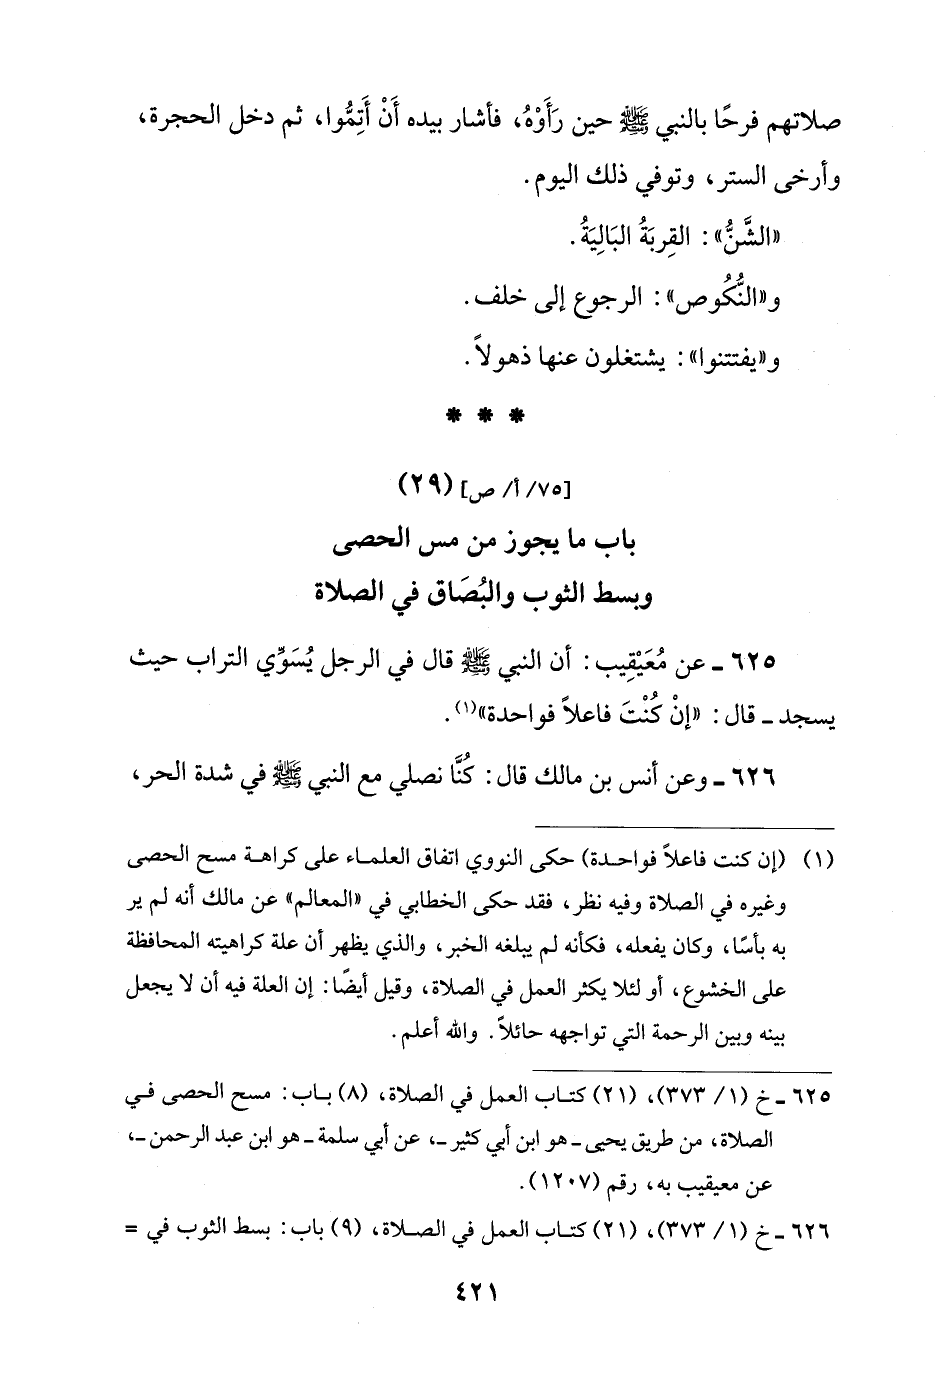 صلاتهم فرحًا بالنبي ﷺ حين رَأَوْهُ، فأشار بيده أَنْ أَتِمُّوا، ثم دخل الحجرة،
وأرخى الستر، وتوفي ذلك اليوم.
«الشَّنُّ»: القِربَةُ البَالِيَةُ.
و«النُّكُوص»: الرجوع إلى خلف.
و«يفتتنوا»: يشتغلون عنها ذهولاً.
* * *
[٧٥/ أ/ ص] (٢٩)
باب ما يجوز من مس الحصى
وبسط الثوب والبُصَاق في الصلاة
٦٢٥ ـ عن مُعَيْقِيب: أن النبي ﷺ قال في الرجل يُسَوِّي التراب حيث
يسجد ـ قال: «إنْ كُنْتَ فاعلاً فواحدة»(١).
٦٢٦ ـ وعن أنس بن مالك قال: كُنَّا نصلي مع النبي ﷺ في شدة الحر،
(١) (إن كنت فاعلاً فواحدة) حكى النووي اتفاق العلماء على كراهة مسح الحصى
وغيره في الصلاة وفيه نظر، فقد حكى الخطابي في «المعالم» عن مالك أنه لم ير
به بأسًا، وكان يفعله، فكأنه لم يبلغه الخبر، والذي يظهر أن علة كراهيته المحافظة
على الخشوع، أو لئلا يكثر العمل في الصلاة، وقيل أيضًا: إن العلة فيه أن لا يجعل
بينه وبين الرحمة التي تواجهه حائلاً. والله أعلم.
٦٢٥ ـ خ (١/ ٣٧٣)، (٢١) كتاب العمل في الصلاة، (٨) باب: مسح الحصى في
الصلاة، من طريق يحيى ـ هو ابن أبي كثير ـ، عن أبي سلمة ـ هو ابن عبد الرحمن ـ،
عن معيقيب به، رقم (١٢٠٧).
٦٢٦ ـ خ (١/ ٣٧٣)، (٢١) كتاب العمل في الصلاة، (٩) باب: بسط الثوب في =
٤٢١